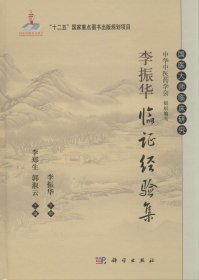 "十二五"国家重点图书出版规划项目
国医大师临床研究
中华中医药学会 组织编写
李振华
临证经验集
李振华 主审
李郑生 郭淑云 主编
科学出版社